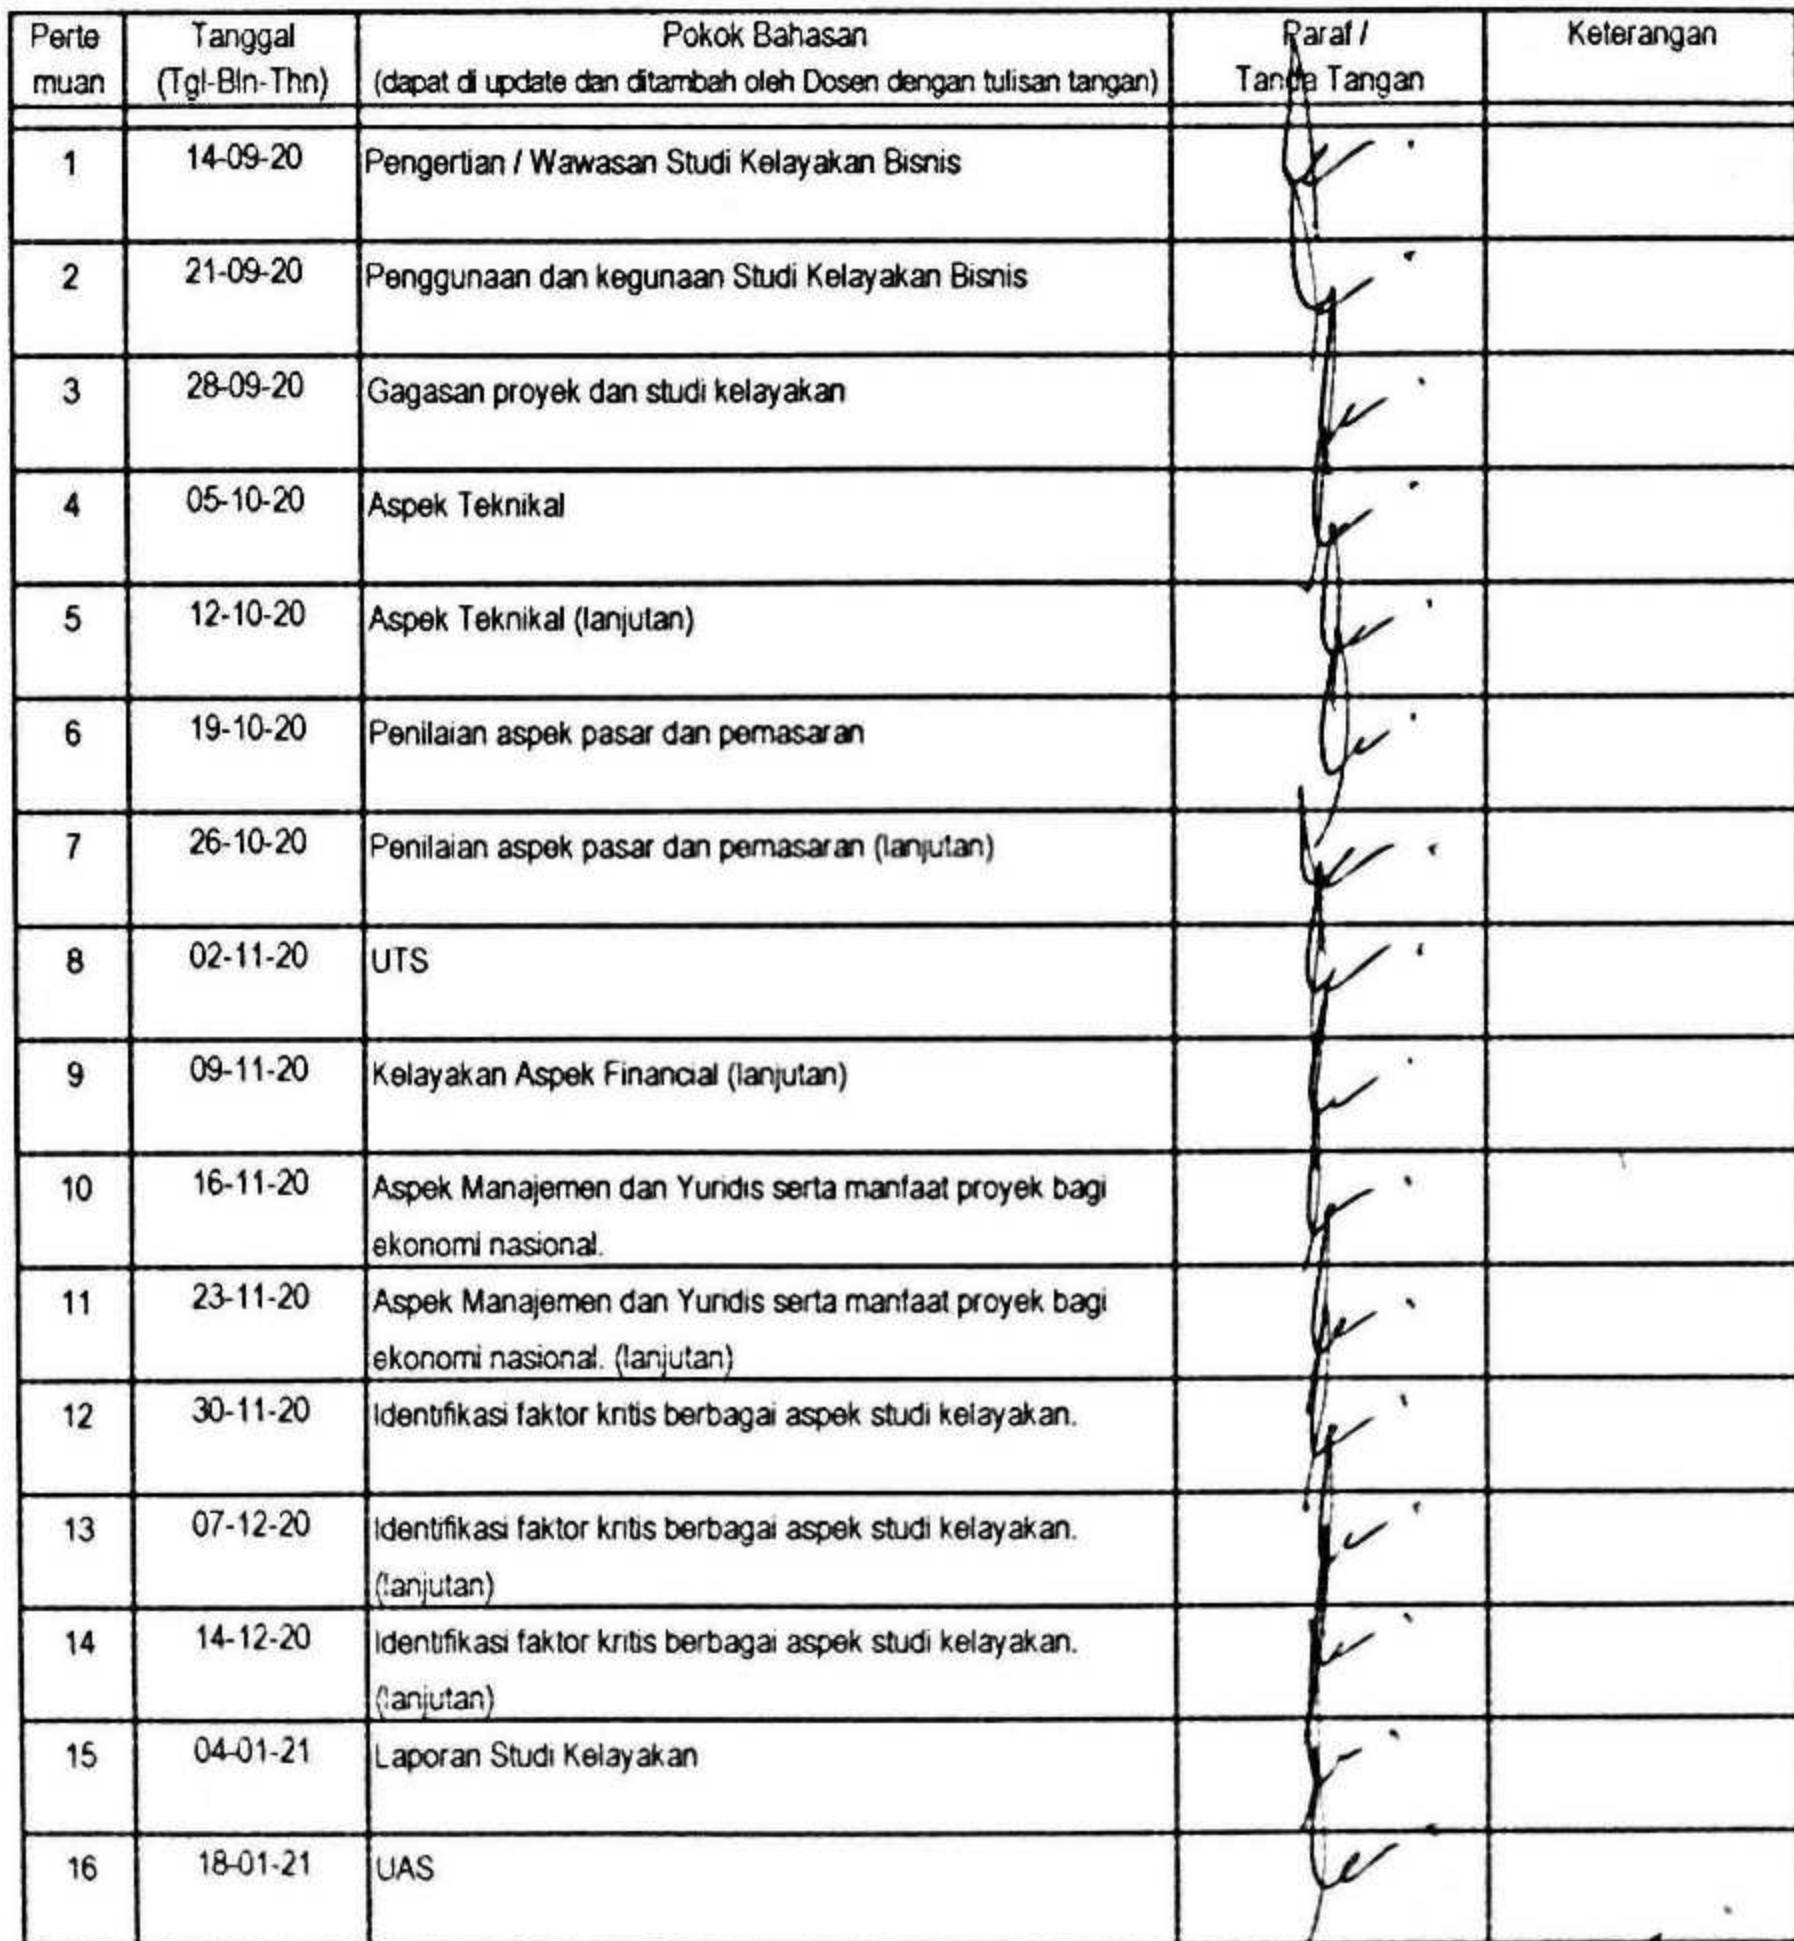 Perte muan Tanggal (Tgl-Bln-Thn) Pokok Bahasan (dapat di update dan ditambah oleh Dosen dengan tulisan tangan) Paraf / Tanda Tangan Keterangan
1 14-09-20 Pengertian / Wawasan Studi Kelayakan Bisnis
2 21-09-20 Penggunaan dan kegunaan Studi Kelayakan Bisnis
3 28-09-20 Gagasan proyek dan studi kelayakan
4 05-10-20 Aspek Teknikal
5 12-10-20 Aspek Teknikal (lanjutan)
6 19-10-20 Penilaian aspek pasar dan pemasaran
7 26-10-20 Penilaian aspek pasar dan pemasaran (lanjutan)
8 02-11-20 UTS
9 09-11-20 Kelayakan Aspek Financial (lanjutan)
10 16-11-20 Aspek Manajemen dan Yuridis serta manfaat proyek bagi
ekonomi nasional.
11 23-11-20 Aspek Manajemen dan Yuridis serta manfaat proyek bagi
ekonomi nasional. (lanjutan)
12 30-11-20 Identifikasi faktor kritis berbagai aspek studi kelayakan.
13 07-12-20 Identifikasi faktor kritis berbagai aspek studi kelayakan.
(lanjutan)
14 14-12-20 Identifikasi faktor kritis berbagai aspek studi kelayakan.
(lanjutan)
15 04-01-21 Laporan Studi Kelayakan
16 18-01-21 UAS